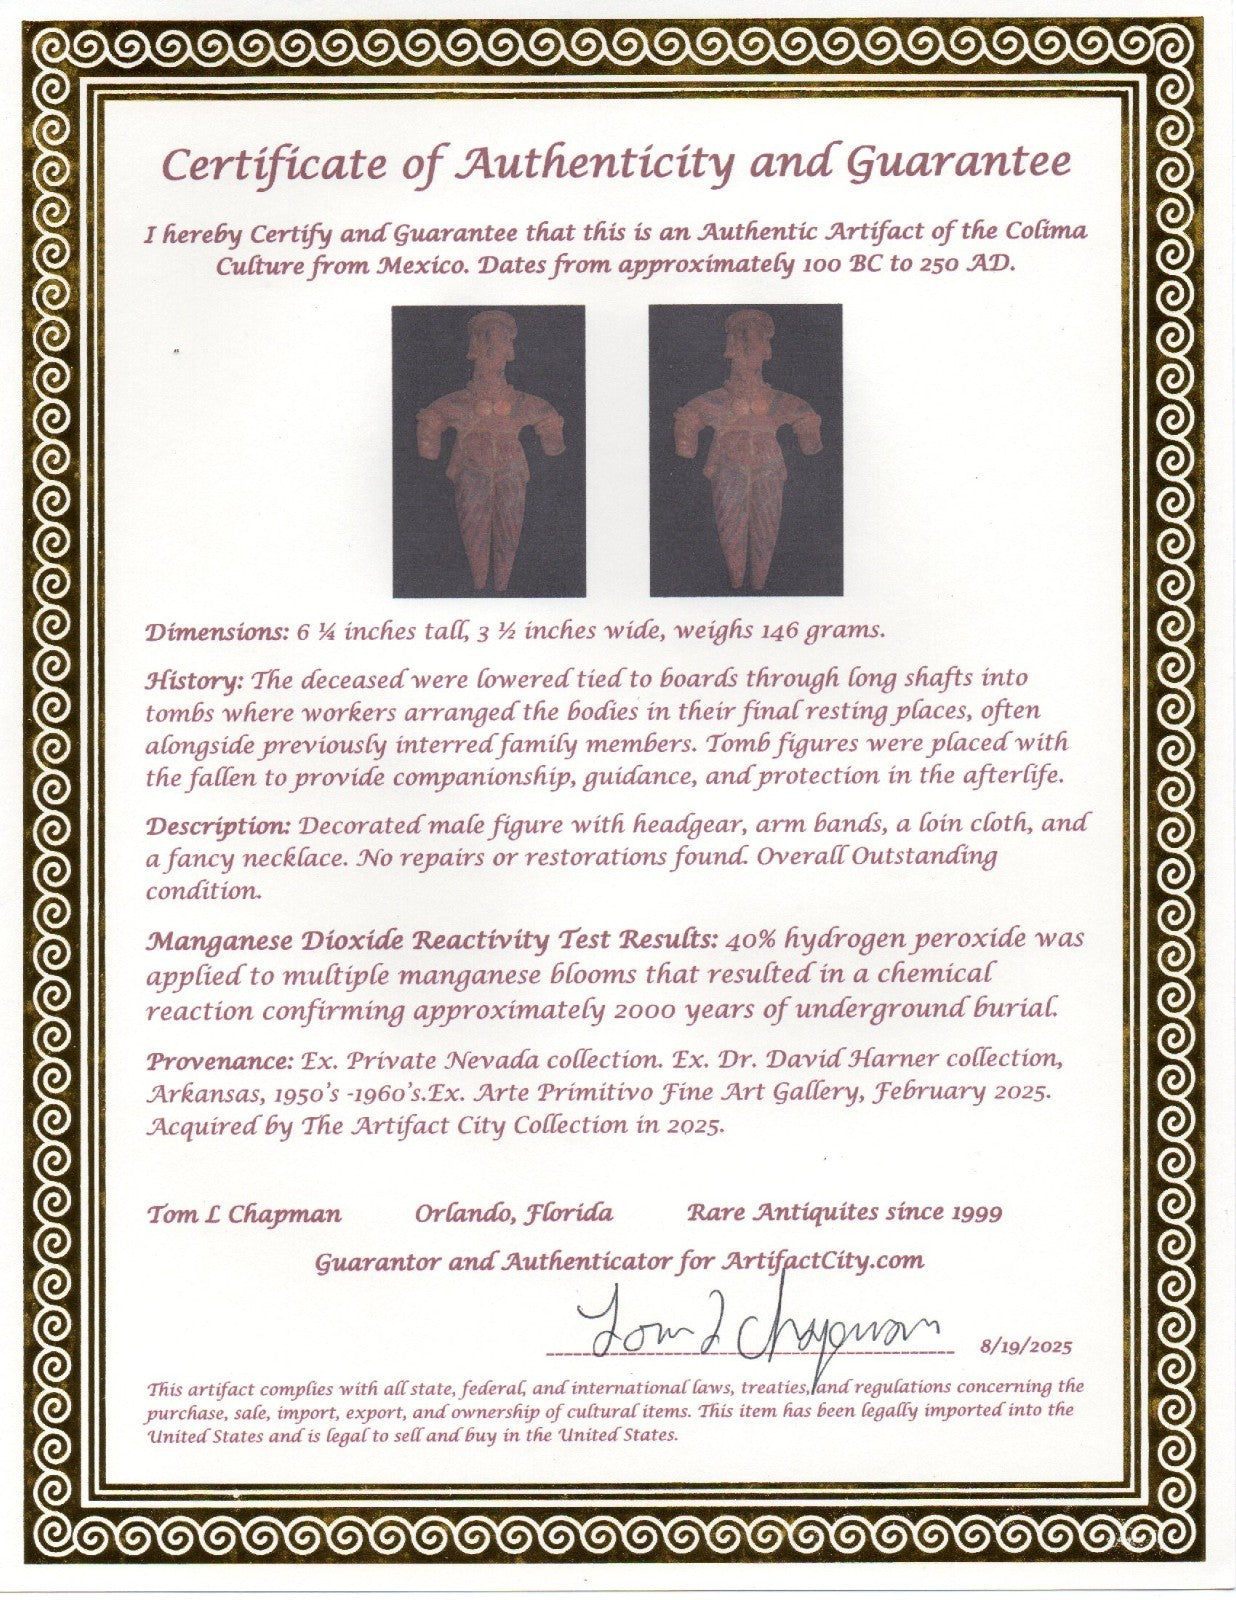 Certificate of Authenticity and Guarantee
I hereby Certify and Guarantee that this is an Authentic Artifact of the Colima
Culture from Mexico. Dates from approximately 100 BC to 250 AD.
Dimensions: 6 ¼ inches tall, 3 ½ inches wide, weighs 146 grams.
History: The deceased were lowered tied to boards through long shafts into
tombs where workers arranged the bodies in their final resting places, often
alongside previously interred family members. Tomb figures were placed with
the fallen to provide companionship, guidance, and protection in the afterlife.
Description: Decorated male figure with headgear, arm bands, a loin cloth, and
a fancy necklace. No repairs or restorations found. Overall Outstanding
condition.
Manganese Dioxide Reactivity Test Results: 40% hydrogen peroxide was
applied to multiple manganese blooms that resulted in a chemical
reaction confirming approximately 2000 years of underground burial.
Provenance: Ex. Private Nevada collection. Ex. Dr. David Harner collection,
Arkansas, 1950's -1960's.Ex. Arte Primitivo Fine Art Gallery, February 2025.
Acquired by The Artifact City Collection in 2025.
Tom L Chapman Orlando, Florida Rare Antiquites since 1999
Guarantor and Authenticator for ArtifactCity.com
Tom L Chapman 8/19/2025
This artifact complies with all state, federal, and international laws, treaties, and regulations concerning the
purchase, sale, import, export, and ownership of cultural items. This item has been legally imported into the
United States and is legal to sell and buy in the United States.